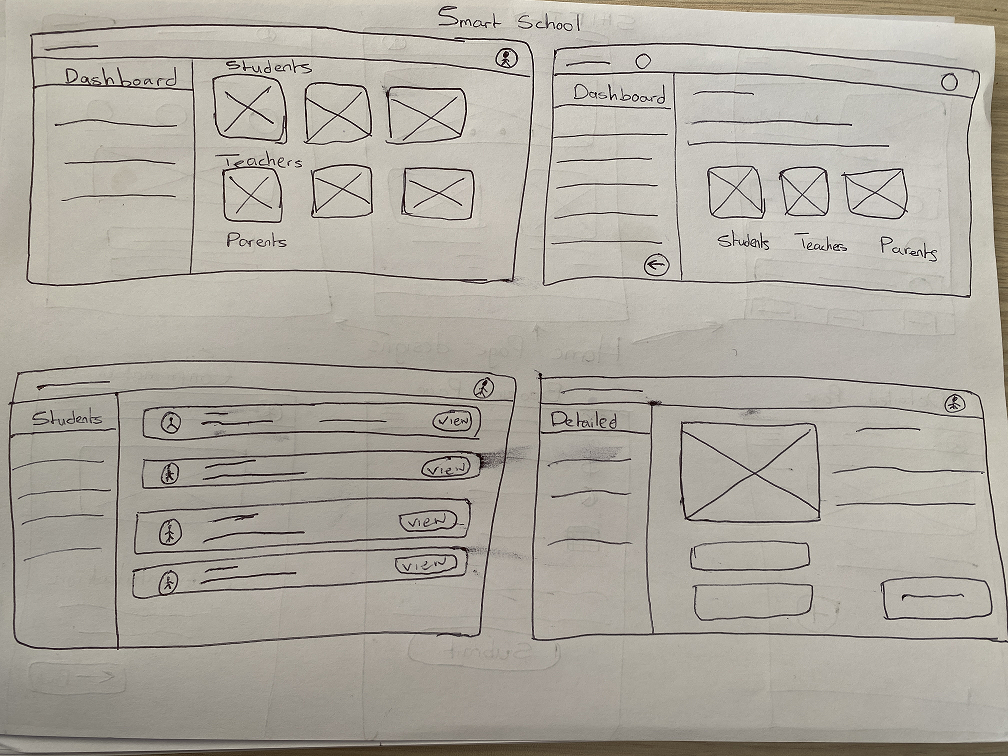 Smart School
Dashboard
Students
Teachers
Parents
Dashboard
Students
Teaches
Parents
Students
VIEW
VIEW
VIEW
VIEW
Detailed
Home Page designs
Submit